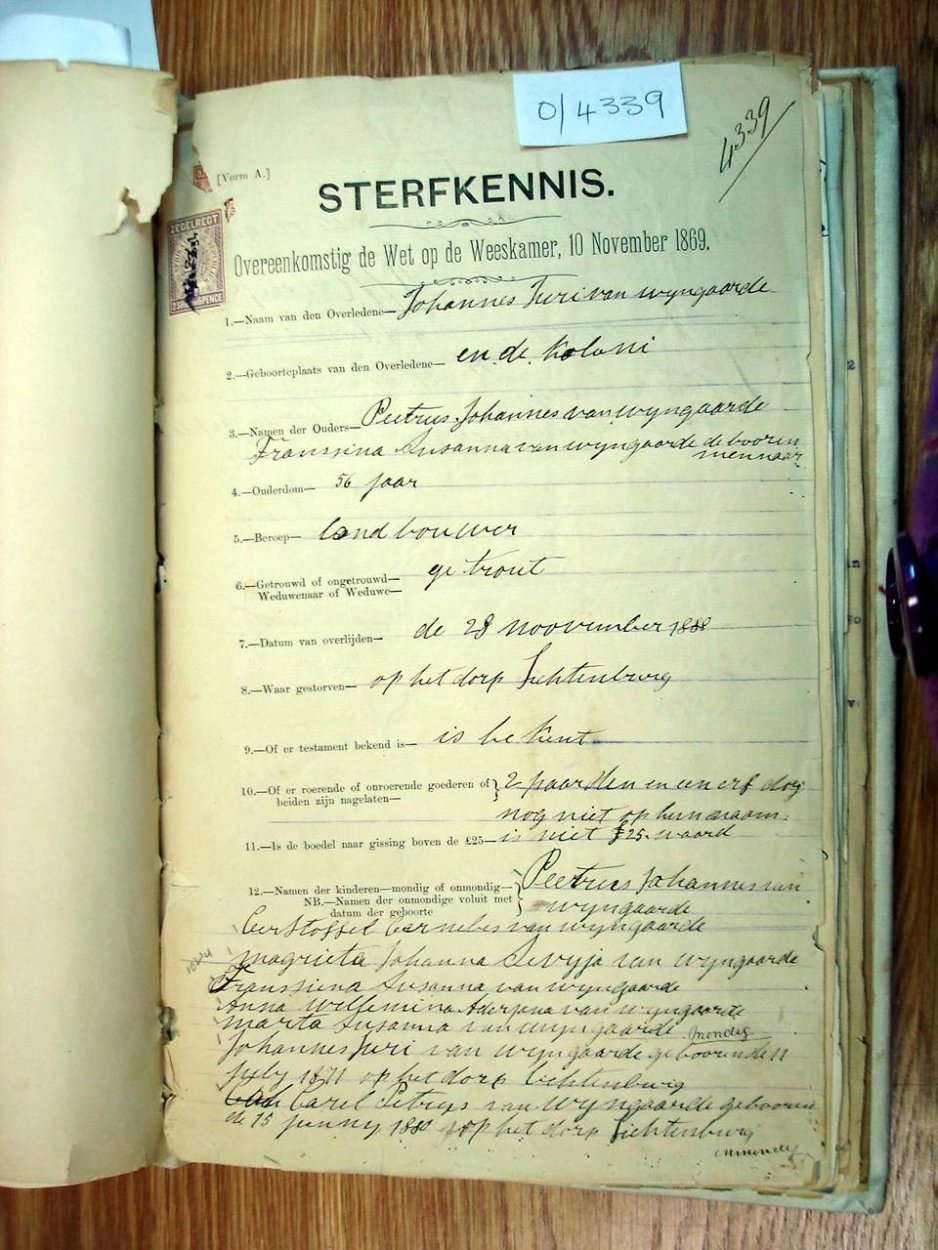 O/4339
4339
[Vorm A.]
STERFKENNIS.
ZEGELREGT
Overeenkomstig de Wet op de Weeskamer, 10 November 1869.
6PENCE
1.—Naam van den Overledene— Johannes Juri van wyngaarde
2.—Geboorteplaats van den Overledene— en de Koloni
3.—Namen der Ouders— Peetrus Johannes van wyngaarde
Franssina Susanna van wyngaarde de booren
mennaar
4.—Ouderdom— 56 jaar
5.—Beroep— land bouwer
6.—Getrouwd of ongetrouwd— ge trout
Weduwenaar of Weduwe—
7.—Datum van overlijden— de 28 noovember 1888
8.—Waar gestorven— op het dorp Lichtenburg
9.—Of er testament bekend is— is be kent
10.—Of er roerende of onroerende goederen of } 2 paarden en een erf dog
beiden zijn nagelaten— nog niet op hem naam
11.—Is de boedel naar gissing boven de £25— is niet £25 waard
12.—Namen der kinderen—mondig of onmondig— } Peetrus Johannes van
NB.—Namen der onmondige voluit met wyngaarde
datum der geboorte
Cerstoffel Cornelis van wyngaarde
magrieta Johanna Sevyja van wyngaarde
Franssiena Susanna van wyngaarde
Anna Willemina Aderjana van wyngaarde
marta Susanna van wyngaarde mondig
Johannes Juri van wyngaarde gebooren den 11
July 1871 op het dorp lichtenburg
Carel Petrus van wyngaarde gebooren
de 15 junny 1880 op het dorp Lichtenburg
onmondig